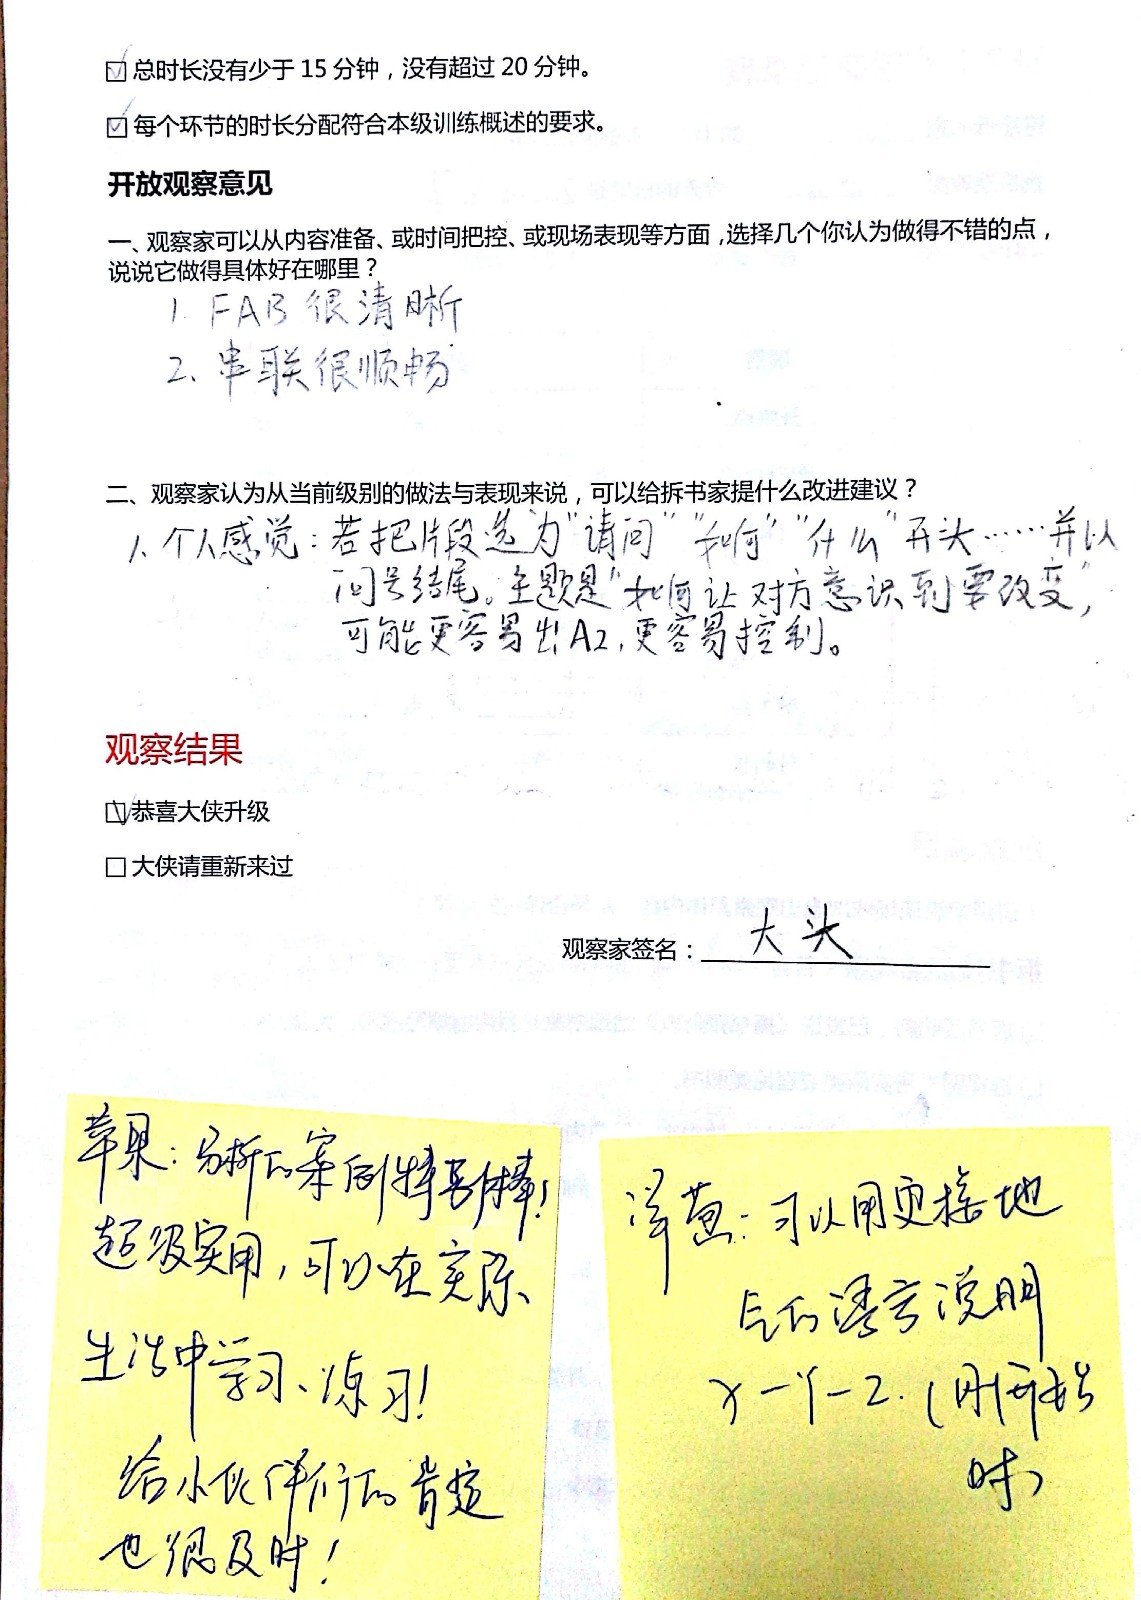 总时长没有少于 15 分钟，没有超过 20 分钟。
每个环节的时长分配符合本级训练概述的要求。
开放观察意见
一、观察家可以从内容准备、或时间把控、或现场表现等方面，选择几个你认为做得不错的点，
说说它做得具体好在哪里？
1. FAB 很清晰
2、串联很顺畅
二、观察家认为从当前级别的做法与表现来说，可以给拆书家提什么改进建议？
1、个人感觉：若把片段选为“请问”“如何”“什么”开头……并以
问号结尾。主题是“如何让对方意识到要改变”，
可能更容易出A2，更容易控制。
观察结果
恭喜大侠升级
大侠请重新来过
观察家签名：大头
苹果：分析的案例特别棒！
超级实用，可以在实际
生活中学习、练习！
给小伙伴们的肯定
也很及时！
洋葱：可以用更接地
气的语言说明
X－Y－Z.（刚开始
时）